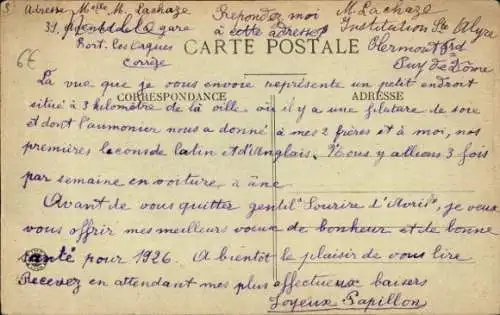 Adresse Melle M. Lachaze
31, Avenue de la gare
Bort. les Orgues
Corrèze
Reponder moi
à cette adresse
M. Lachaze
Institution Ste Alyre
Clermont frd
Puy de Dôme
6€
CARTE POSTALE
CORRESPONDANCE
ADRESSE
La vue que je vous envoie représente un petit endroit
situé à 3 kilomètre de la ville où il y a une filature de soie
et dont l'aumonier nous a donné à mes 2 frères et à moi, nos
premières lecons de latin et d'Anglais. Nous y allions 3 fois
par semaine en voiture à âne
Avant de vous quitter gentil "Sourire d'Avril", je veux
vous offrir mes meilleurs voeux de bonheur et de bonne
santé pour 1926. A bientôt le plaisir de vous lire
Recevez en attendant mes plus affectueux baisers
Joyeux Papillon